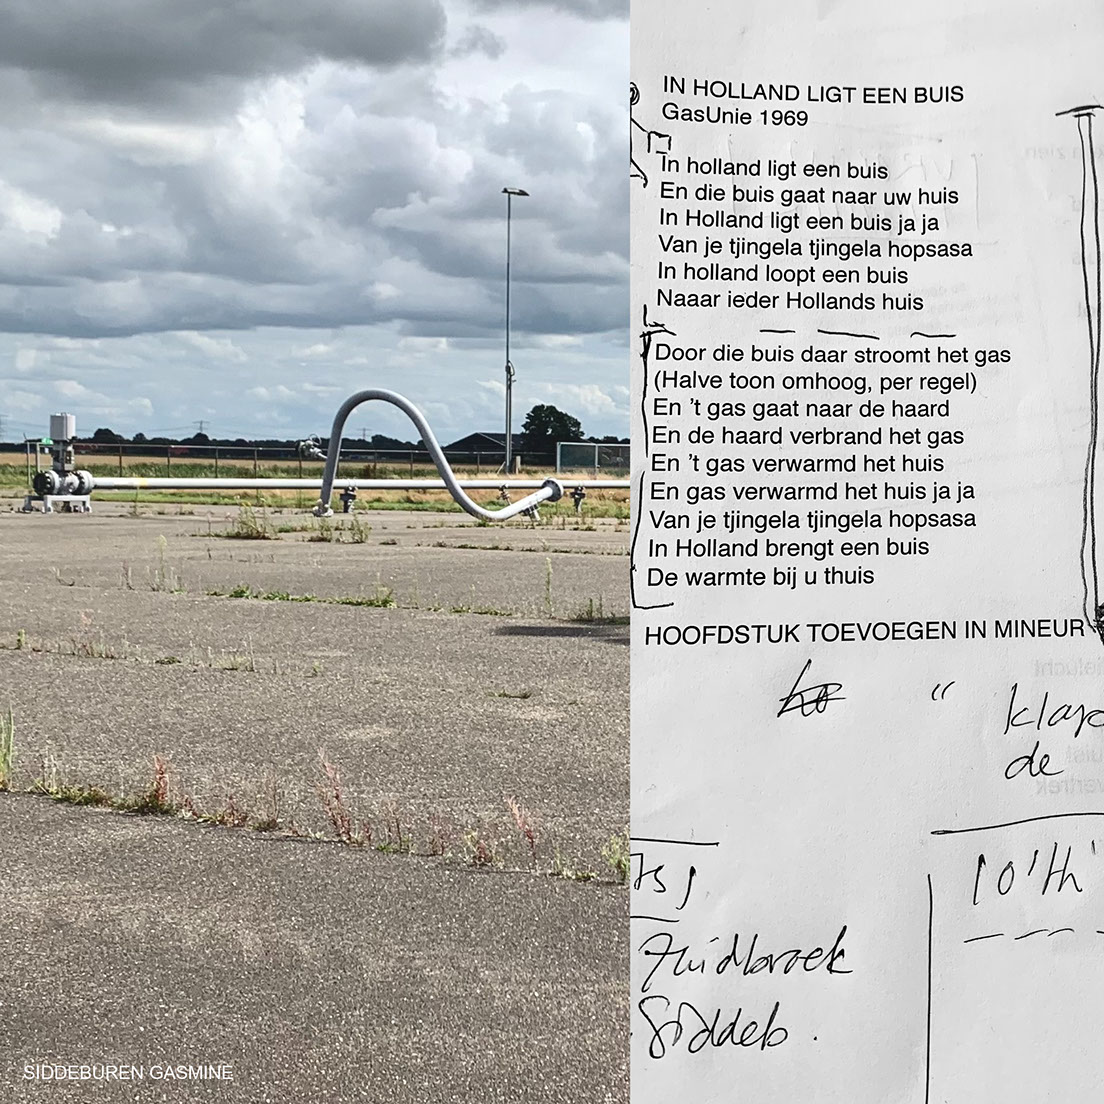 IN HOLLAND LIGT EEN BUIS
GasUnie 1969
In holland ligt een buis
En die buis gaat naar uw huis
In Holland ligt een buis ja ja
Van je tjingela tjingela hopsasa
In holland loopt een buis
Naaar ieder Hollands huis
Door die buis daar stroomt het gas
(Halve toon omhoog, per regel)
En 't gas gaat naar de haard
En de haard verbrand het gas
En 't gas verwarmd het huis
En gas verwarmd het huis ja ja
Van je tjingela tjingela hopsasa
In Holland brengt een buis
De warmte bij u thuis
HOOFDSTUK TOEVOEGEN IN MINEUR
de
Zuidbroek
Siddeb.
SIDDEBUREN GASMINE